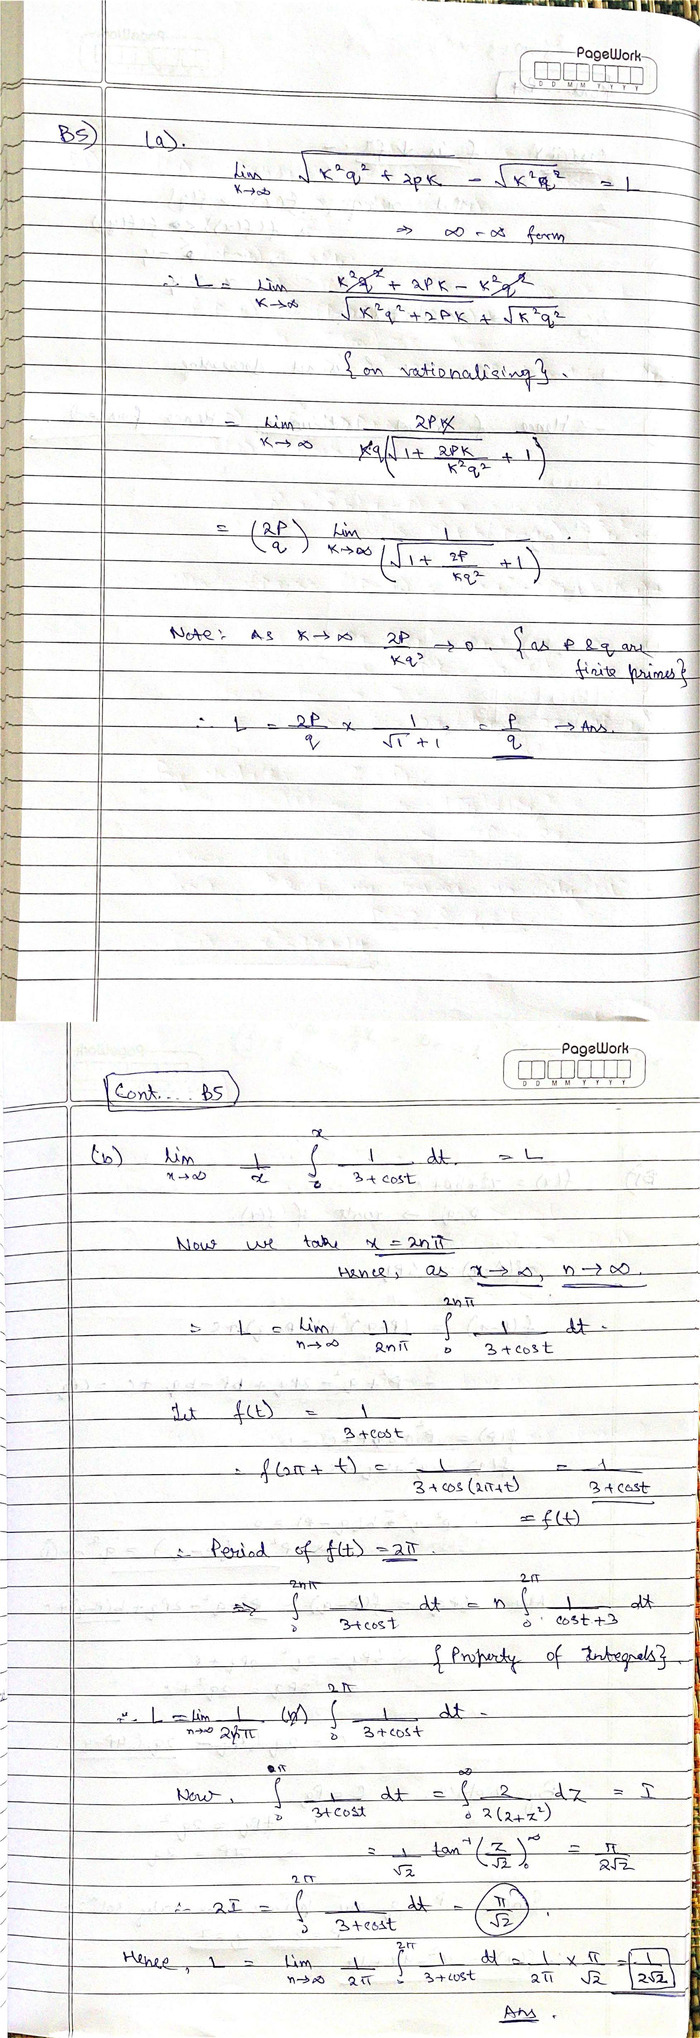 PageWork
D D M M Y Y Y Y
B5) (a).
lim K→∞ √(K²q² + 2pK) - √(K²q²) = L
⇒ ∞ - ∞ form
∴ L = lim K→∞ (K²q² + 2PK - K²q²) / (√(K²q² + 2PK) + √(K²q²))
{on rationalising}.
= lim K→∞ 2PK / (Kq(√(1 + 2PK/K²q²) + 1))
= (2P/q) lim K→∞ 1 / (√(1 + 2P/Kq²) + 1).
Note: As K→∞ 2P/Kq² → 0. {as P & q are
finite primes}
∴ L = 2P/q × 1/(√1 + 1) = P/q → Ans.
PageWork
D D M M Y Y Y Y
Cont.... B5)
(b) lim x→∞ 1/x ∫₀ˣ 1/(3+cost) dt. = L
Now we take x = 2nπ
Hence, as x→∞, n→∞.
= L = lim n→∞ 1/2nπ ∫₀^2nπ 1/(3+cost) dt.
Let f(t) = 1/(3+cost)
= f(2π + t) = 1/(3+cos(2π+t)) = 1/(3+cost)
= f(t)
∴ Period of f(t) = 2π.
⇒ ∫₀^2nπ 1/(3+cost) dt = n ∫₀^2π 1/(cost+3) dt
{Property of Integrals}.
∴ L = lim n→∞ 1/2nπ (n) ∫₀^2π 1/(3+cost) dt -
Now, ∫₀^π 1/(3+cost) dt = ∫₀^∞ 2/2(2+z²) dz = I
= 1/√2 tan⁻¹(z/√2)₀^∞ = π/2√2
∴ 2I = ∫₀^2π 1/(3+cost) dt = π/√2.
Hence, L = lim n→∞ 1/2π ∫₀^2π 1/(3+cost) dt = 1/2π × π/√2 = 1/2√2
Ans.